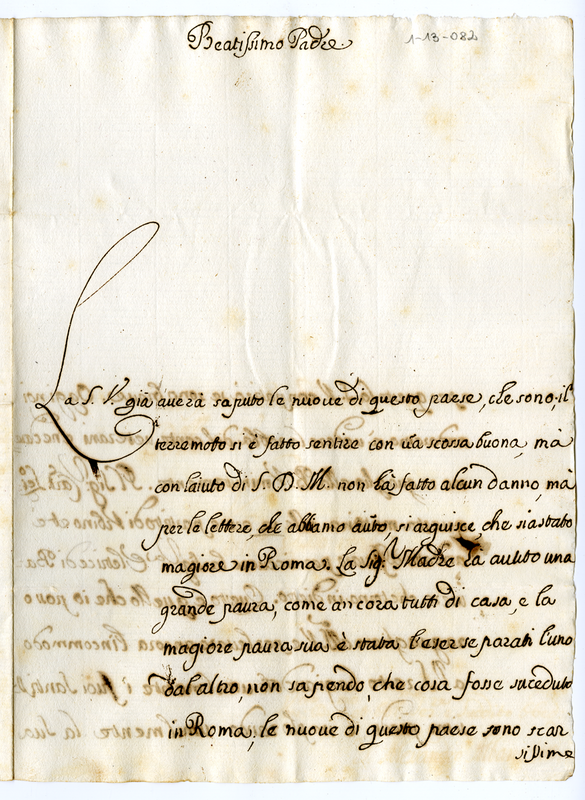 Beatissimo Padre
1-13-082
La S. V. già auerà saputo le nuoue di questo paese, che sono, il
terremoto si è fatto sentire con u'a scossa buona, mà
con laiuto di S. D. M. non hà fatto alcun danno, mà
per le lettere, che abbiamo auto, si arguisce che sia stato
magiore in Roma. La Sig.ʳᵃ Madre ha auuto una
grande paura, come ancora tutti di casa, e la
magiore paura sua è stata l'eser separati l'uno
dal altro, non sapendo, che cosa fosse suceduto
in Roma, le nuoue di questo paese sono scar
sissime